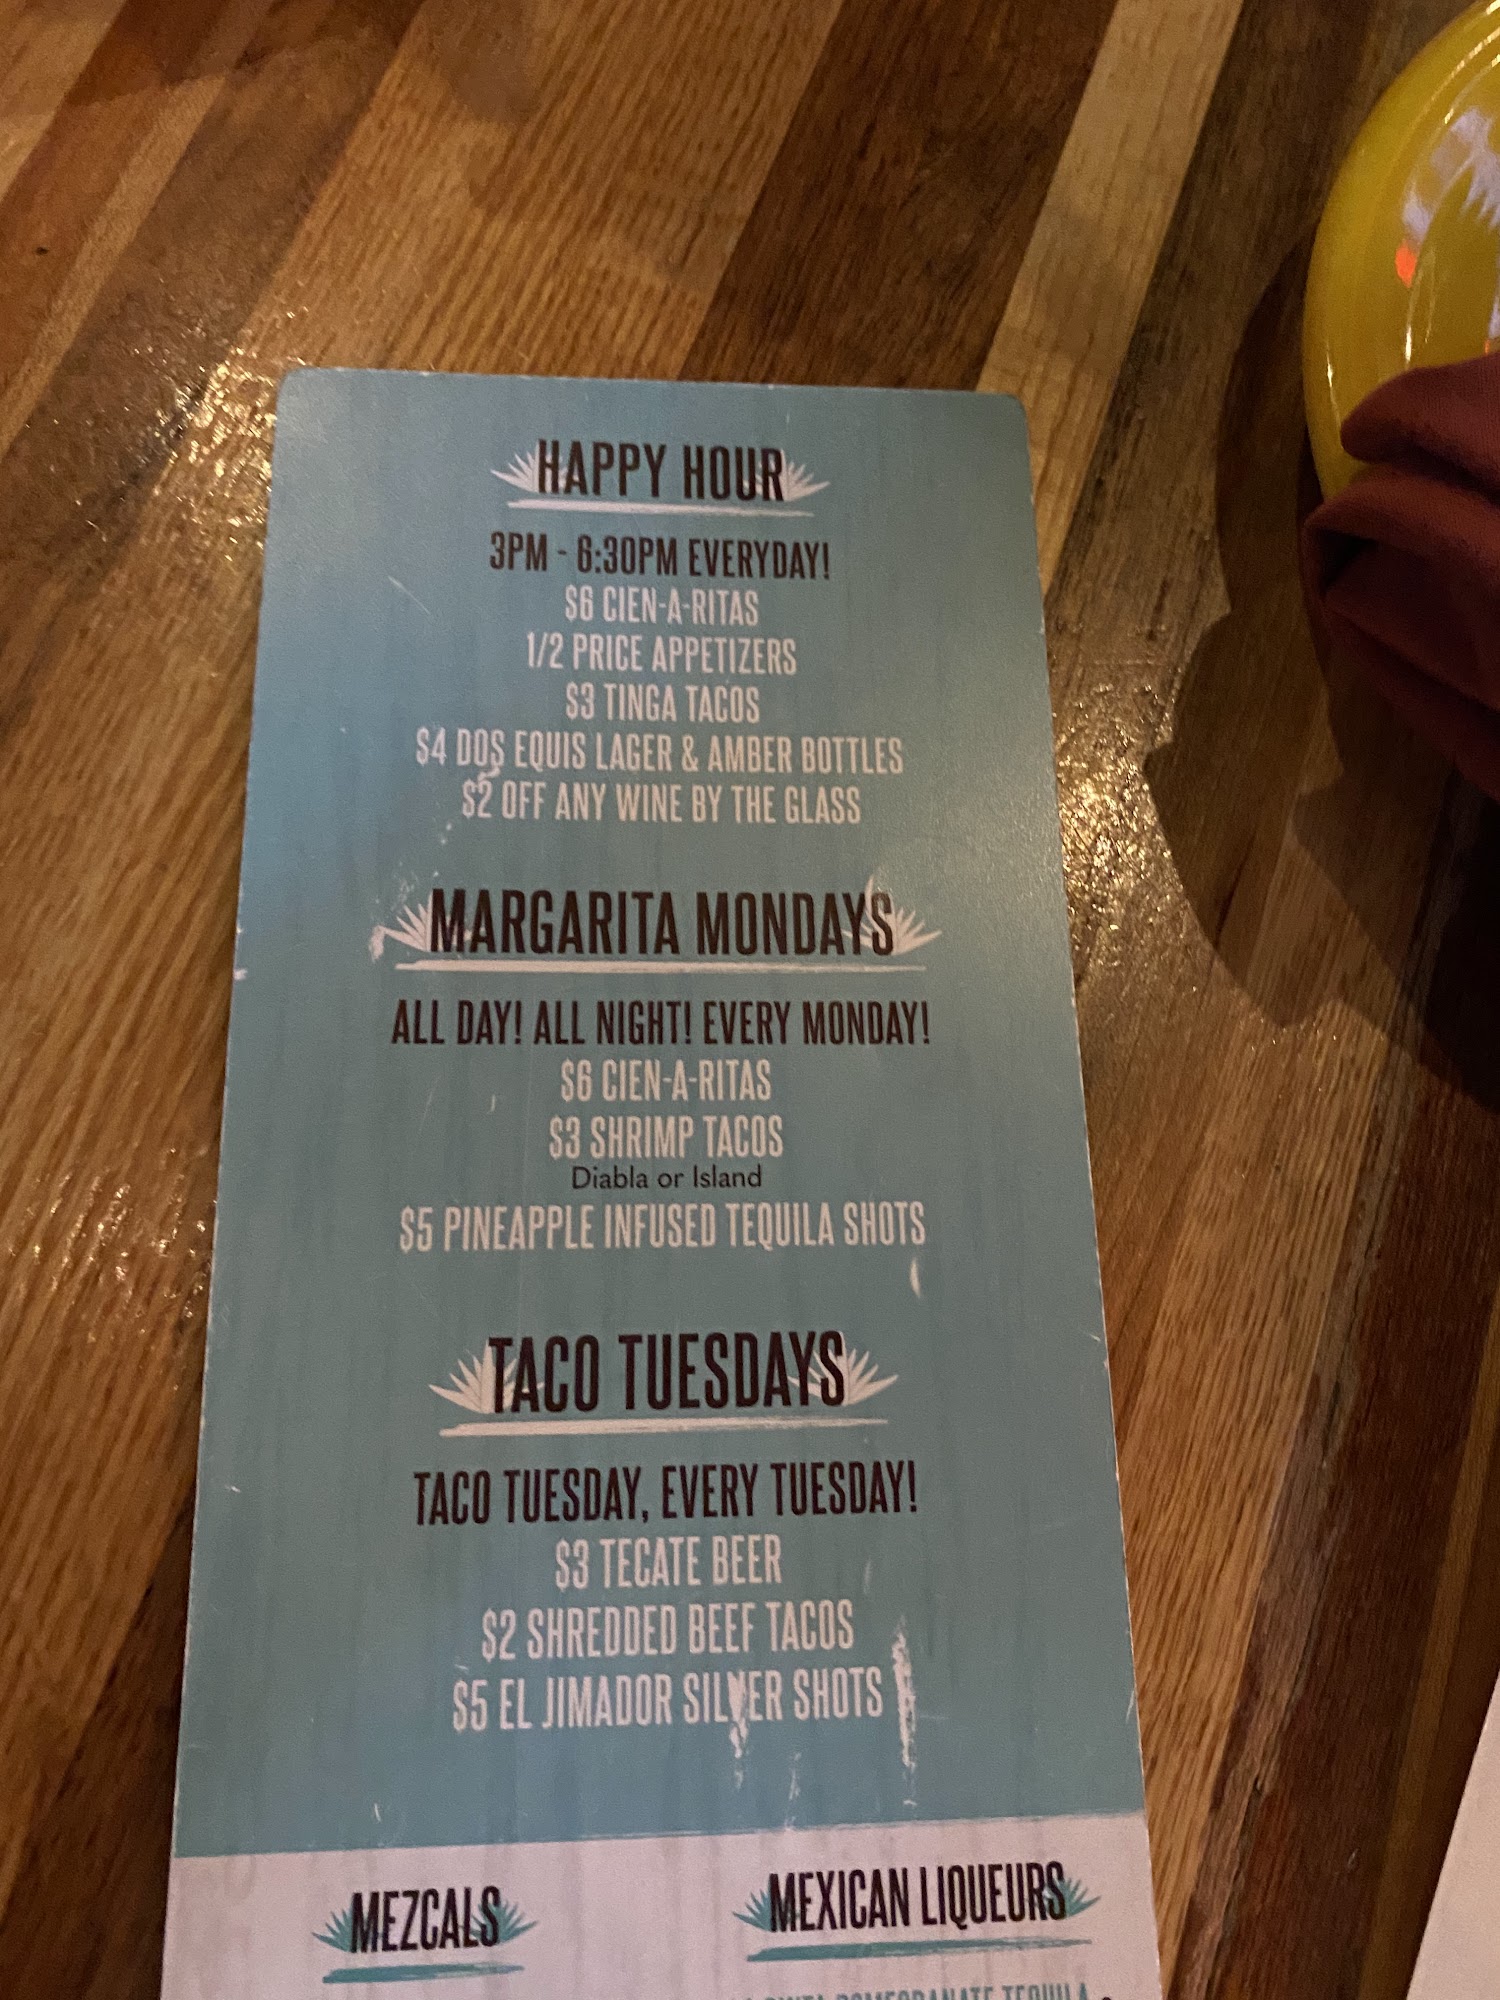 HAPPY HOUR
3PM - 6:30PM EVERYDAY!
$6 CIEN-A-RITAS
1/2 PRICE APPETIZERS
$3 TINGA TACOS
$4 DOS EQUIS LAGER & AMBER BOTTLES
$2 OFF ANY WINE BY THE GLASS
MARGARITA MONDAYS
ALL DAY! ALL NIGHT! EVERY MONDAY!
$6 CIEN-A-RITAS
$3 SHRIMP TACOS
Diabla or Island
$5 PINEAPPLE INFUSED TEQUILA SHOTS
TACO TUESDAYS
TACO TUESDAY, EVERY TUESDAY!
$3 TECATE BEER
$2 SHREDDED BEEF TACOS
$5 EL JIMADOR SILVER SHOTS
MEZCALS
MEXICAN LIQUEURS
POMEGRANATE TEQUILA